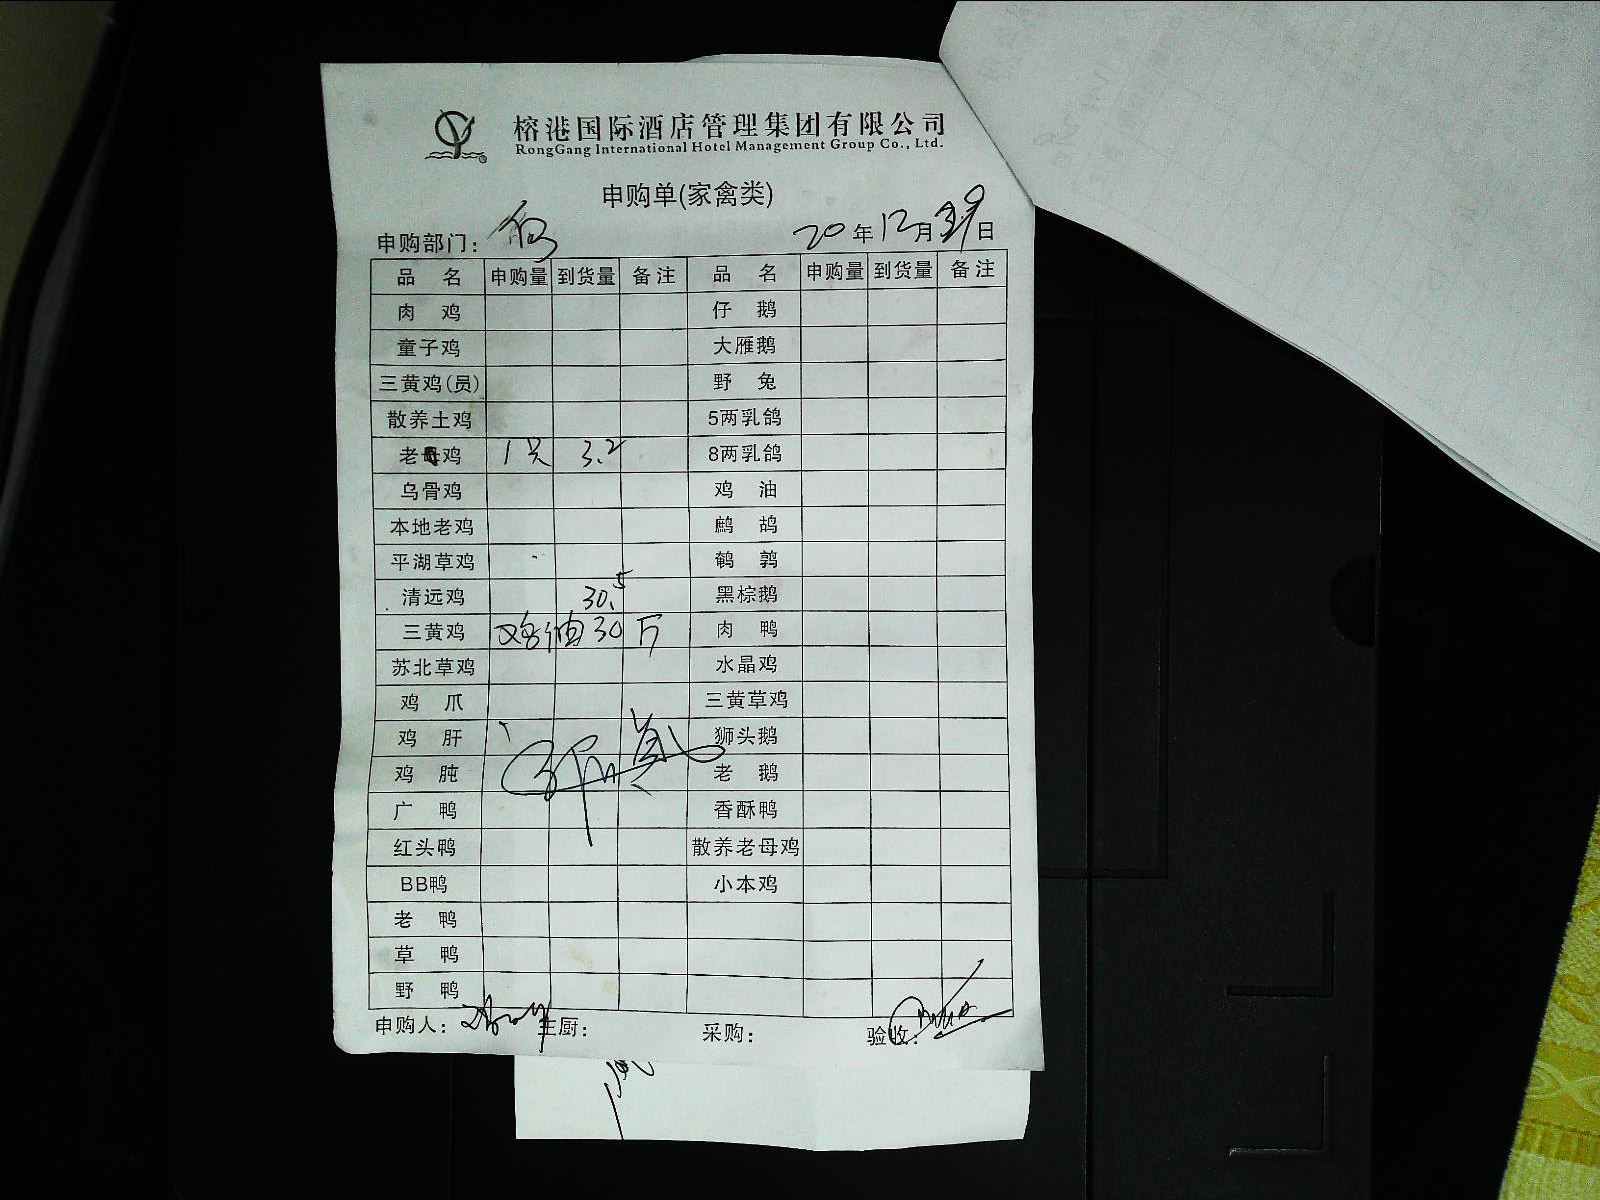 榕港国际酒店管理集团有限公司
RongGang International Hotel Management Group Co., Ltd.
申购单(家禽类)
申购部门: 20年12月29日
品 名 申购量 到货量 备注 品 名 申购量 到货量 备注
肉 鸡 仔 鹅
童子鸡 大雁鹅
三黄鸡(员) 野 兔
散养土鸡 5两乳鸽
老母鸡 1只 3.2 8两乳鸽
乌骨鸡 鸡 油
本地老鸡 鹧 鸪
平湖草鸡 鹌 鹑
清远鸡 30.5 黑棕鹅
三黄鸡 鸡油30斤 肉 鸭
苏北草鸡 水晶鸡
鸡 爪 三黄草鸡
鸡 肝 狮头鹅
鸡 肫 老 鹅
广 鸭 香酥鸭
红头鸭 散养老母鸡
BB鸭 小本鸡
老 鸭
草 鸭
野 鸭
申购人: 主厨: 采购: 验收: